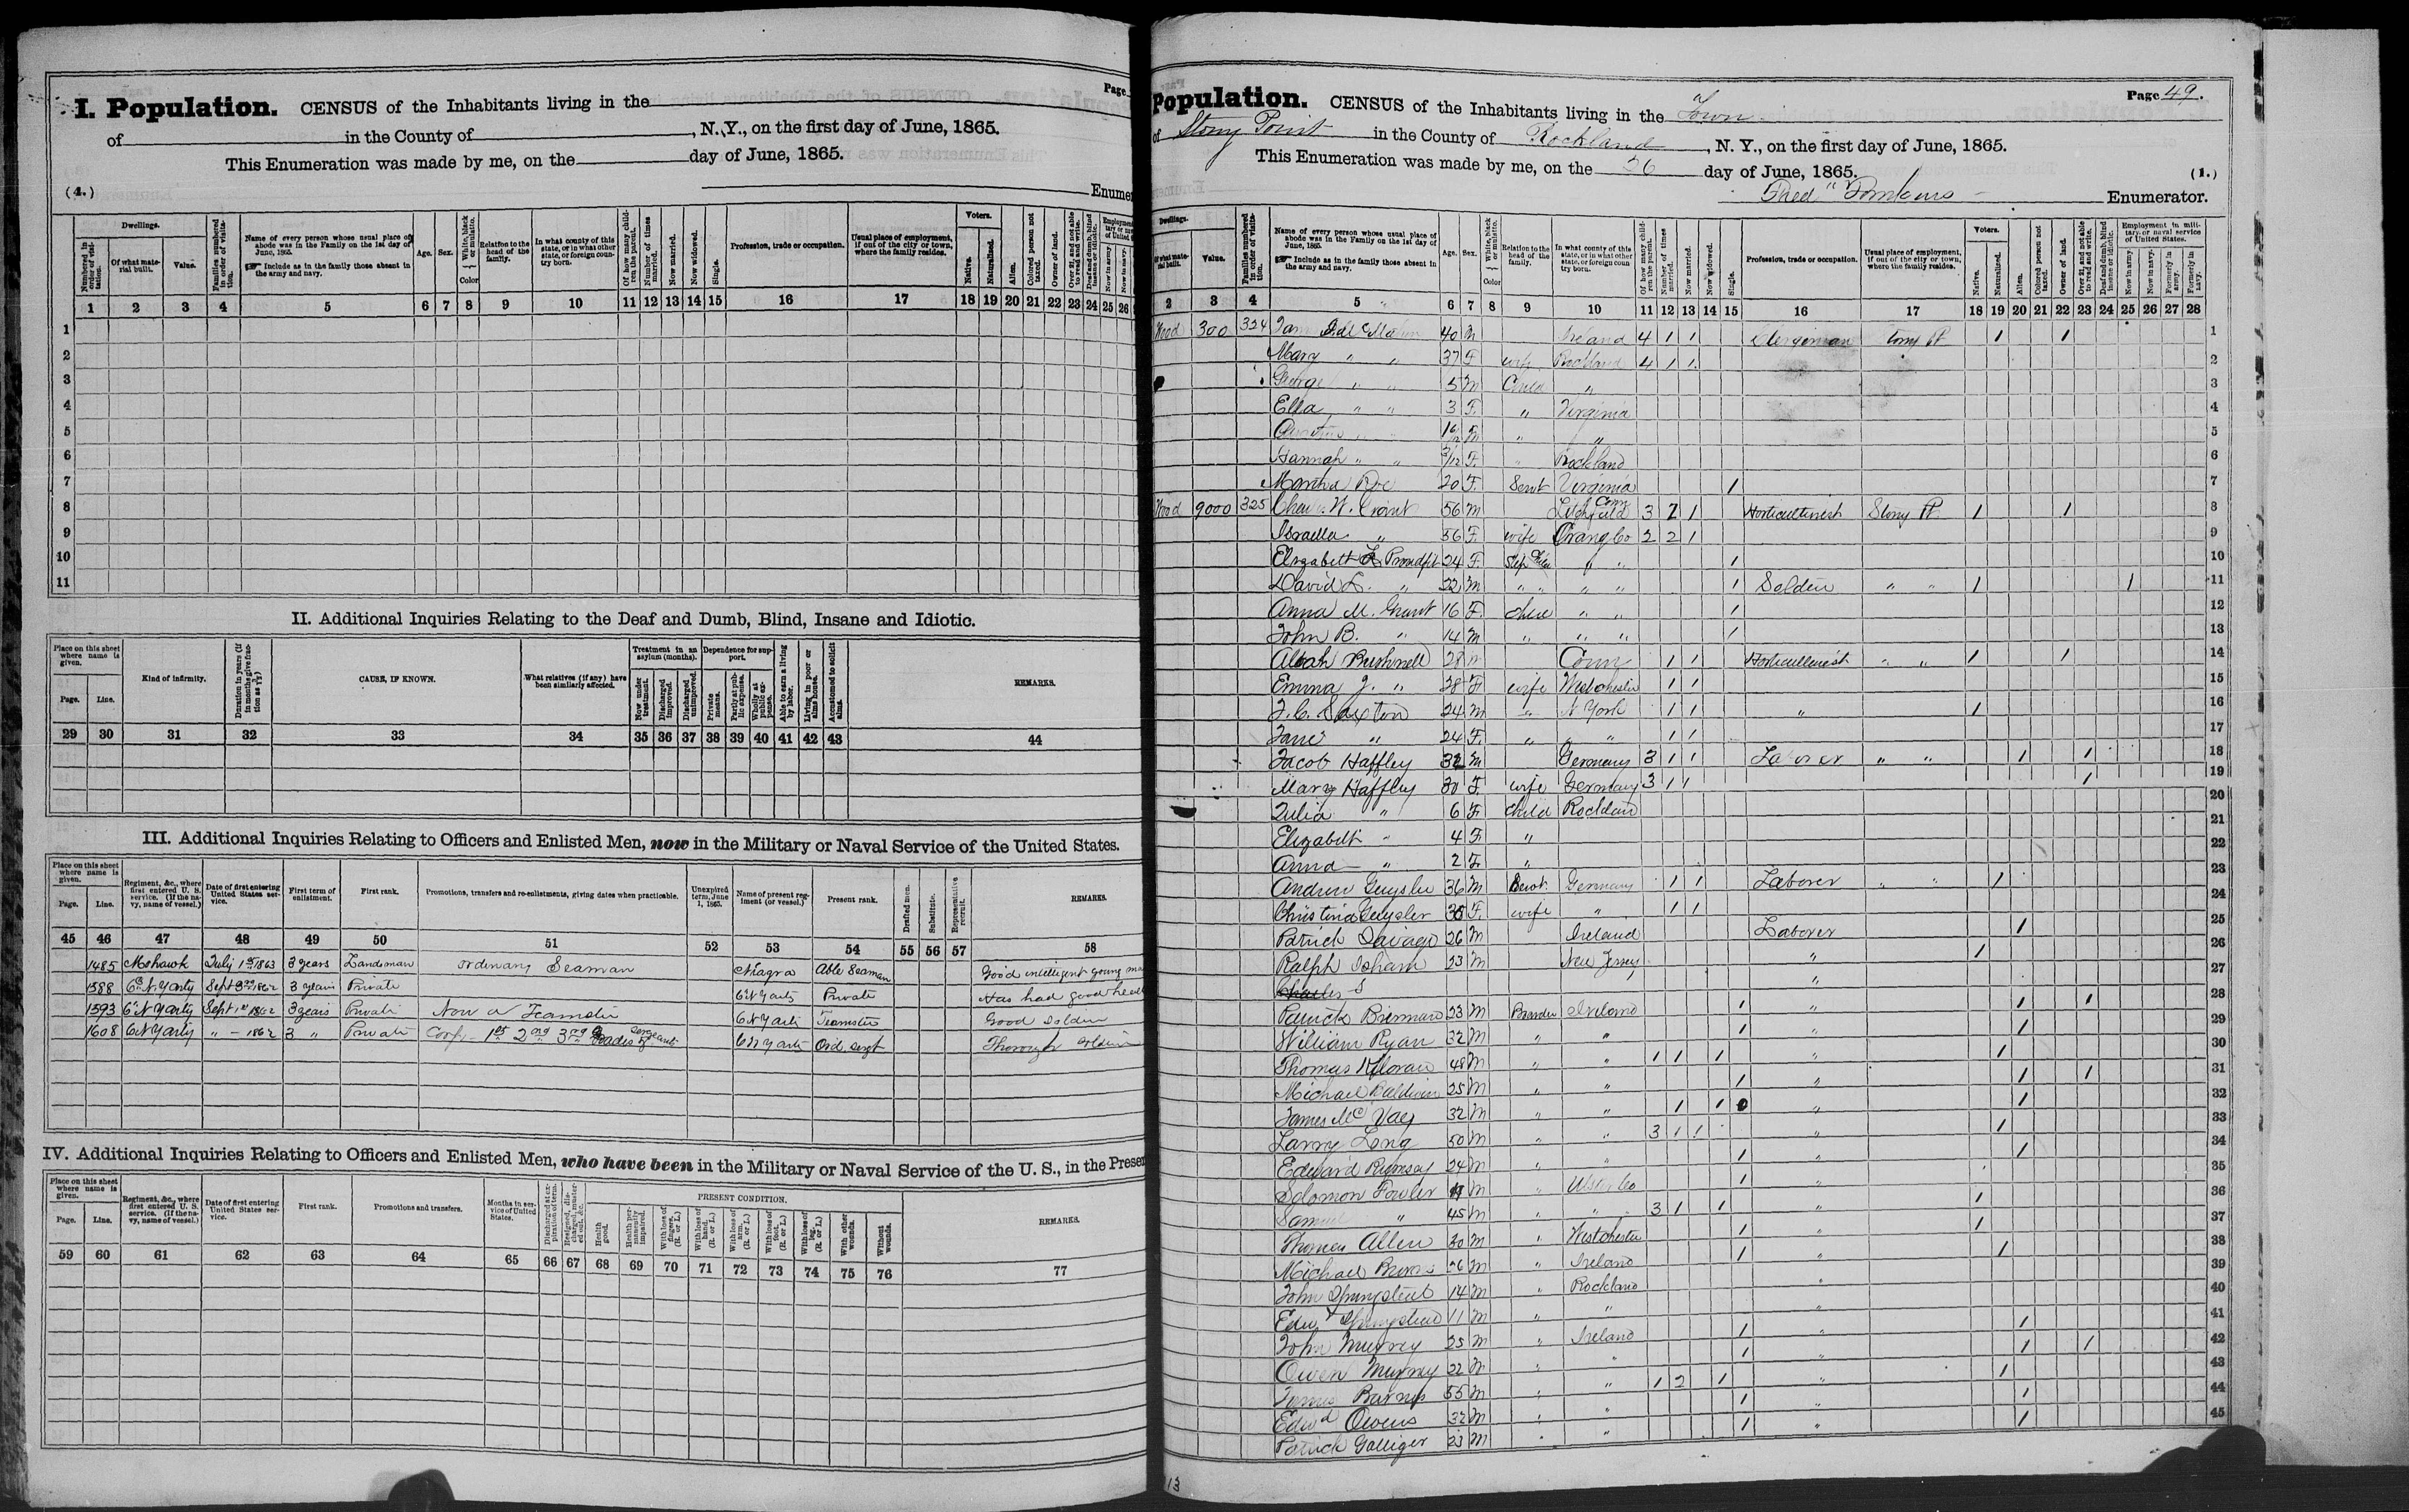 Page
I. Population. CENSUS of the Inhabitants living in the
of in the County of , N. Y., on the first day of June, 1865.
This Enumeration was made by me, on the day of June, 1865.
(4.) Enumer
Dwellings.
Numbered in order of visitation.
Of what material built.
Value.
Families numbered in order of visitation.
Name of every person whose usual place of abode was in the Family on the 1st day of June, 1865.
Include as in the family those absent in the army and navy.
Age.
Sex.
White, black or mulatto.
Color
Relation to the head of the family.
In what county of this state, or in what other state, or foreign country born.
Of how many children the parent.
Number of times married.
Now married.
Now widowed.
Single.
Profession, trade or occupation.
Usual place of employment, if out of the city or town, where the family resides.
Voters.
Native.
Naturalized.
Alien.
Colored person not taxed.
Owner of land.
Over 21, and not able to read and write.
Deaf and dumb, blind insane or idiotic.
Now in army
Now in navy.
1 2 3 4 5 6 7 8 9 10 11 12 13 14 15 16 17 18 19 20 21 22 23 24 25 26
1
2
3
4
5
6
7
8
9
10
11
II. Additional Inquiries Relating to the Deaf and Dumb, Blind, Insane and Idiotic.
Place on this sheet where name is given.
Page.
Line.
Kind of infirmity.
CAUSE, IF KNOWN.
What relatives (if any) have been similarly affected.
Treatment in an asylum (months).
Now under treatment.
Discharged improved.
Discharged unimproved.
Dependence for support.
Private means.
Partly at public expense.
Wholly at public expense.
Able to earn a living by labor.
Living in poor or alms house.
Accustomed to solicit alms.
REMARKS.
29 30 31 32 33 34 35 36 37 38 39 40 41 42 43 44
III. Additional Inquiries Relating to Officers and Enlisted Men, now in the Military or Naval Service of the United States.
Place on this sheet where name is given.
Page.
Line.
Regiment, &c., where first entered U. S. service. (If the navy, name of vessel.)
Date of first entering United States service.
First term of enlistment.
First rank.
Promotions, transfers and re-enlistments, giving dates when practicable.
Unexpired term, June 1, 1865.
Name of present regiment (or vessel.)
Present rank.
Drafted men.
Substitute.
Representative recruit.
REMARKS.
45 46 47 48 49 50 51 52 53 54 55 56 57 58
1485 Mohawk July 1st 1863 3 years Landsman ordinary Seaman Niagra Able Seaman Good intelligent young ma
1588 6th N Y arty Sept 1862 3 years Private 6 N Y arty Private Has had good heal
1593 6th N Y arty Sept 1st 1862 3 years Private Now a Teamster 6 N Y arty Teamster Good Soldier
1608 6 N Y arty " — 1862 3 " Private Corp 1st 2nd 3rd 6 N Y arty Ord. sergt Thorough soldier
IV. Additional Inquiries Relating to Officers and Enlisted Men, who have been in the Military or Naval Service of the U. S., in the Presen
Place on this sheet where name is given.
Page.
Line.
Regiment, &c., where first entered U. S. service. (If the navy, name of vessel.)
Date of first entering United States service.
First rank.
Promotions and transfers.
Months in service of United States.
PRESENT CONDITION.
Health good.
Health permanently impaired.
With loss of fingers. (R. or L.)
With loss of hand. (R. or L.)
With loss of arm. (R. or L.)
With loss of foot. (R. or L.)
With loss of leg. (R. or L.)
With other wounds.
Without wounds.
REMARKS.
59 60 61 62 63 64 65 66 67 68 69 70 71 72 73 74 75 76 77
Page 49.
Population. CENSUS of the Inhabitants living in the Town
of Stony Point in the County of Rockland , N. Y., on the first day of June, 1865.
This Enumeration was made by me, on the 26 day of June, 1865. (1.)
Fred Tomkins Enumerator.
Dwellings.
Of what material built.
Value.
Families numbered in order of visitation.
Name of every person whose usual place of abode was in the Family on the 1st day of June, 1865.
Include as in the family those absent in the army and navy.
Age.
Sex.
White, black or mulatto.
Color
Relation to the head of the family.
In what county of this state, or in what other state, or foreign country born.
Of how many children the parent.
Number of times married.
Now married.
Now widowed.
Single.
Profession, trade or occupation.
Usual place of employment, if out of the city or town, where the family resides.
Voters.
Native.
Naturalized.
Alien.
Colored person not taxed.
Owner of land.
Over 21, and not able to read and write.
Deaf and dumb, blind insane or idiotic.
Employment in military or naval service of United States.
Now in army
Now in navy.
Formerly in army.
Formerly in navy.
2 3 4 5 6 7 8 9 10 11 12 13 14 15 16 17 18 19 20 21 22 23 24 25 26 27 28
Wood 300 324 40 M Ireland 4 1 1 Clergyman Stony Pt 1 1 1
Mary " " 37 F wife Rockland 4 1 1 2
George " " 5 M Child " 3
Ella " " 3 F " Virginia 4
M " " 5
Hannah " " F " Rockland 6
Martha Roe 20 F Servt Virginia 1 7
Wood 9000 325 Chas. W. Grant 56 M Litchfield Conn 3 2 1 Horticulturist Stony Pt 1 1 8
Israella " 56 F wife Orange Co 2 2 1 9
Elizabeth L Proudfit 24 F Step " " 1 10
David L. " 22 M " " " " 1 Soldier " " 1 1 11
Anna M. Grant 16 F child " " 1 12
John B. " 14 M " " " 1 13
Altah Bushnell 28 m Conn 1 1 Horticulturist " " 1 1 14
Emma J. " 28 F wife Westchester 1 1 15
F. C. Saxton 24 M " N York 1 1 " 1 16
Jane " 24 F " " " 1 1 17
Jacob Haffley 32 M Germany 3 1 1 Laborer " " 1 1 18
Mary Haffley 30 F wife Germany 3 1 1 1 19
Julia " 6 F child Rockland 20
Elizabeth " 4 F " 21
Anna " 2 F " 22
Andrew Guysler 36 M Servt. Germany 1 1 Laborer " " 1 23
Christina Guysler 35 F wife " 1 1 24
Patrick Savage 26 M Ireland Laborer 1 25
Ralph Isham 23 M New Jersey " 1 26
Charles S " 27
Patrick Brennan 23 M Boarder Ireland 1 " 1 1 28
William Ryan 32 M " " 1 " 1 29
Thomas Kiloran 48 M " " 1 1 1 " 1 30
Michael Baldwin 25 M " " 1 " 1 1 31
James Mc Vay 32 M " " 1 1 " 1 32
Larry Long 50 M " " 3 1 1 " 1 33
Edward Rumsay 24 M " " 1 " 1 34
Solomon Fowler M " Ulster Co 1 " 35
" 45 M " " 3 1 1 " 1 36
Thomas Allen 30 M " Westchester 1 " 1 37
Michael 26 M " Ireland 1 " 1 38
John Springsteed 14 M " Rockland " 39
Edw. Springsteed 11 M " " " 40
John Murrey 25 M " Ireland 1 " 1 41
Owen Murrey 22 M " " 1 " 1 1 42
James Barnes 55 M " " 1 2 1 " 1 43
Edwd Owens 32 M " " 1 " 1 44
Patrick Galliger 23 M " " 1 " 1 45
13